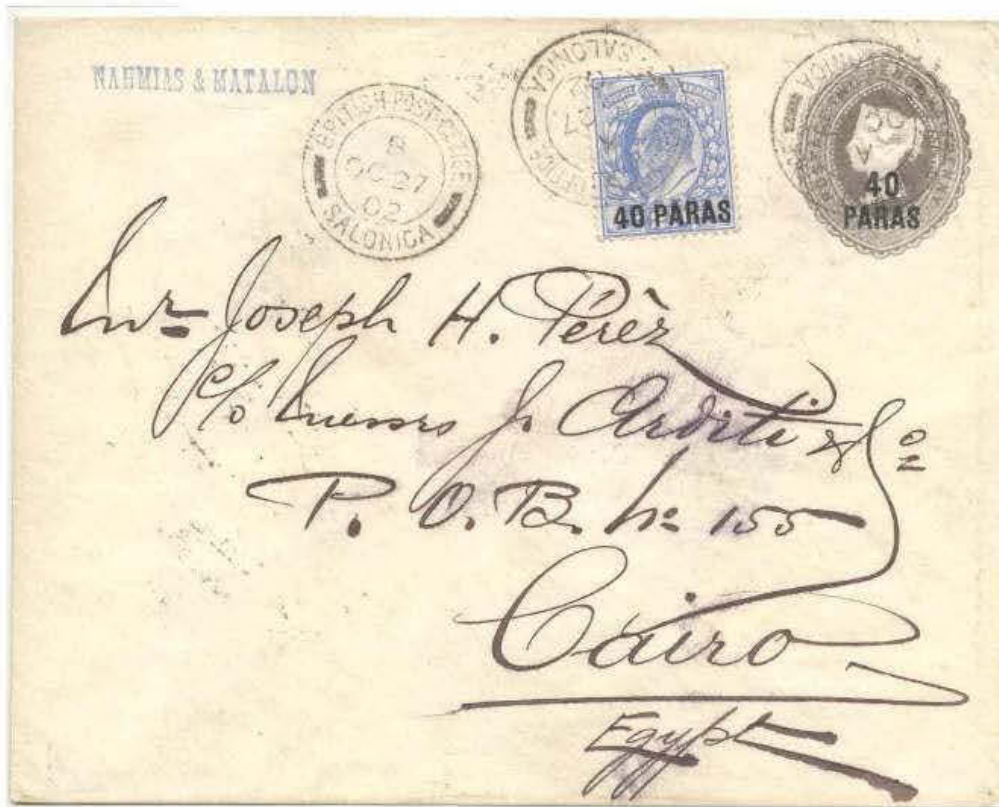 NAHMIAS & MATALON
BRITISH POST OFFICE
OC 27
02
SALONICA
SALONICA
40 PARAS
40
PARAS
Mr Joseph H. Pérèz
c/o Messrs J. Arditi & Co
P. O. B. No 155
Cairo
Egypt